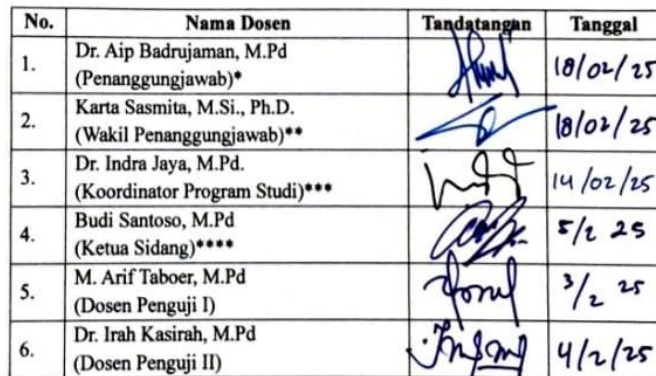 No. Nama Dosen Tandatangan Tanggal
1. Dr. Aip Badrujaman, M.Pd
(Penanggungjawab)* 18/02/25
2. Karta Sasmita, M.Si., Ph.D.
(Wakil Penanggungjawab)** 18/02/25
3. Dr. Indra Jaya, M.Pd.
(Koordinator Program Studi)*** 14/02/25
4. Budi Santoso, M.Pd
(Ketua Sidang)**** 5/2 25
5. M. Arif Taboer, M.Pd
(Dosen Penguji I) 3/2 25
6. Dr. Irah Kasirah, M.Pd
(Dosen Penguji II) 4/2/25